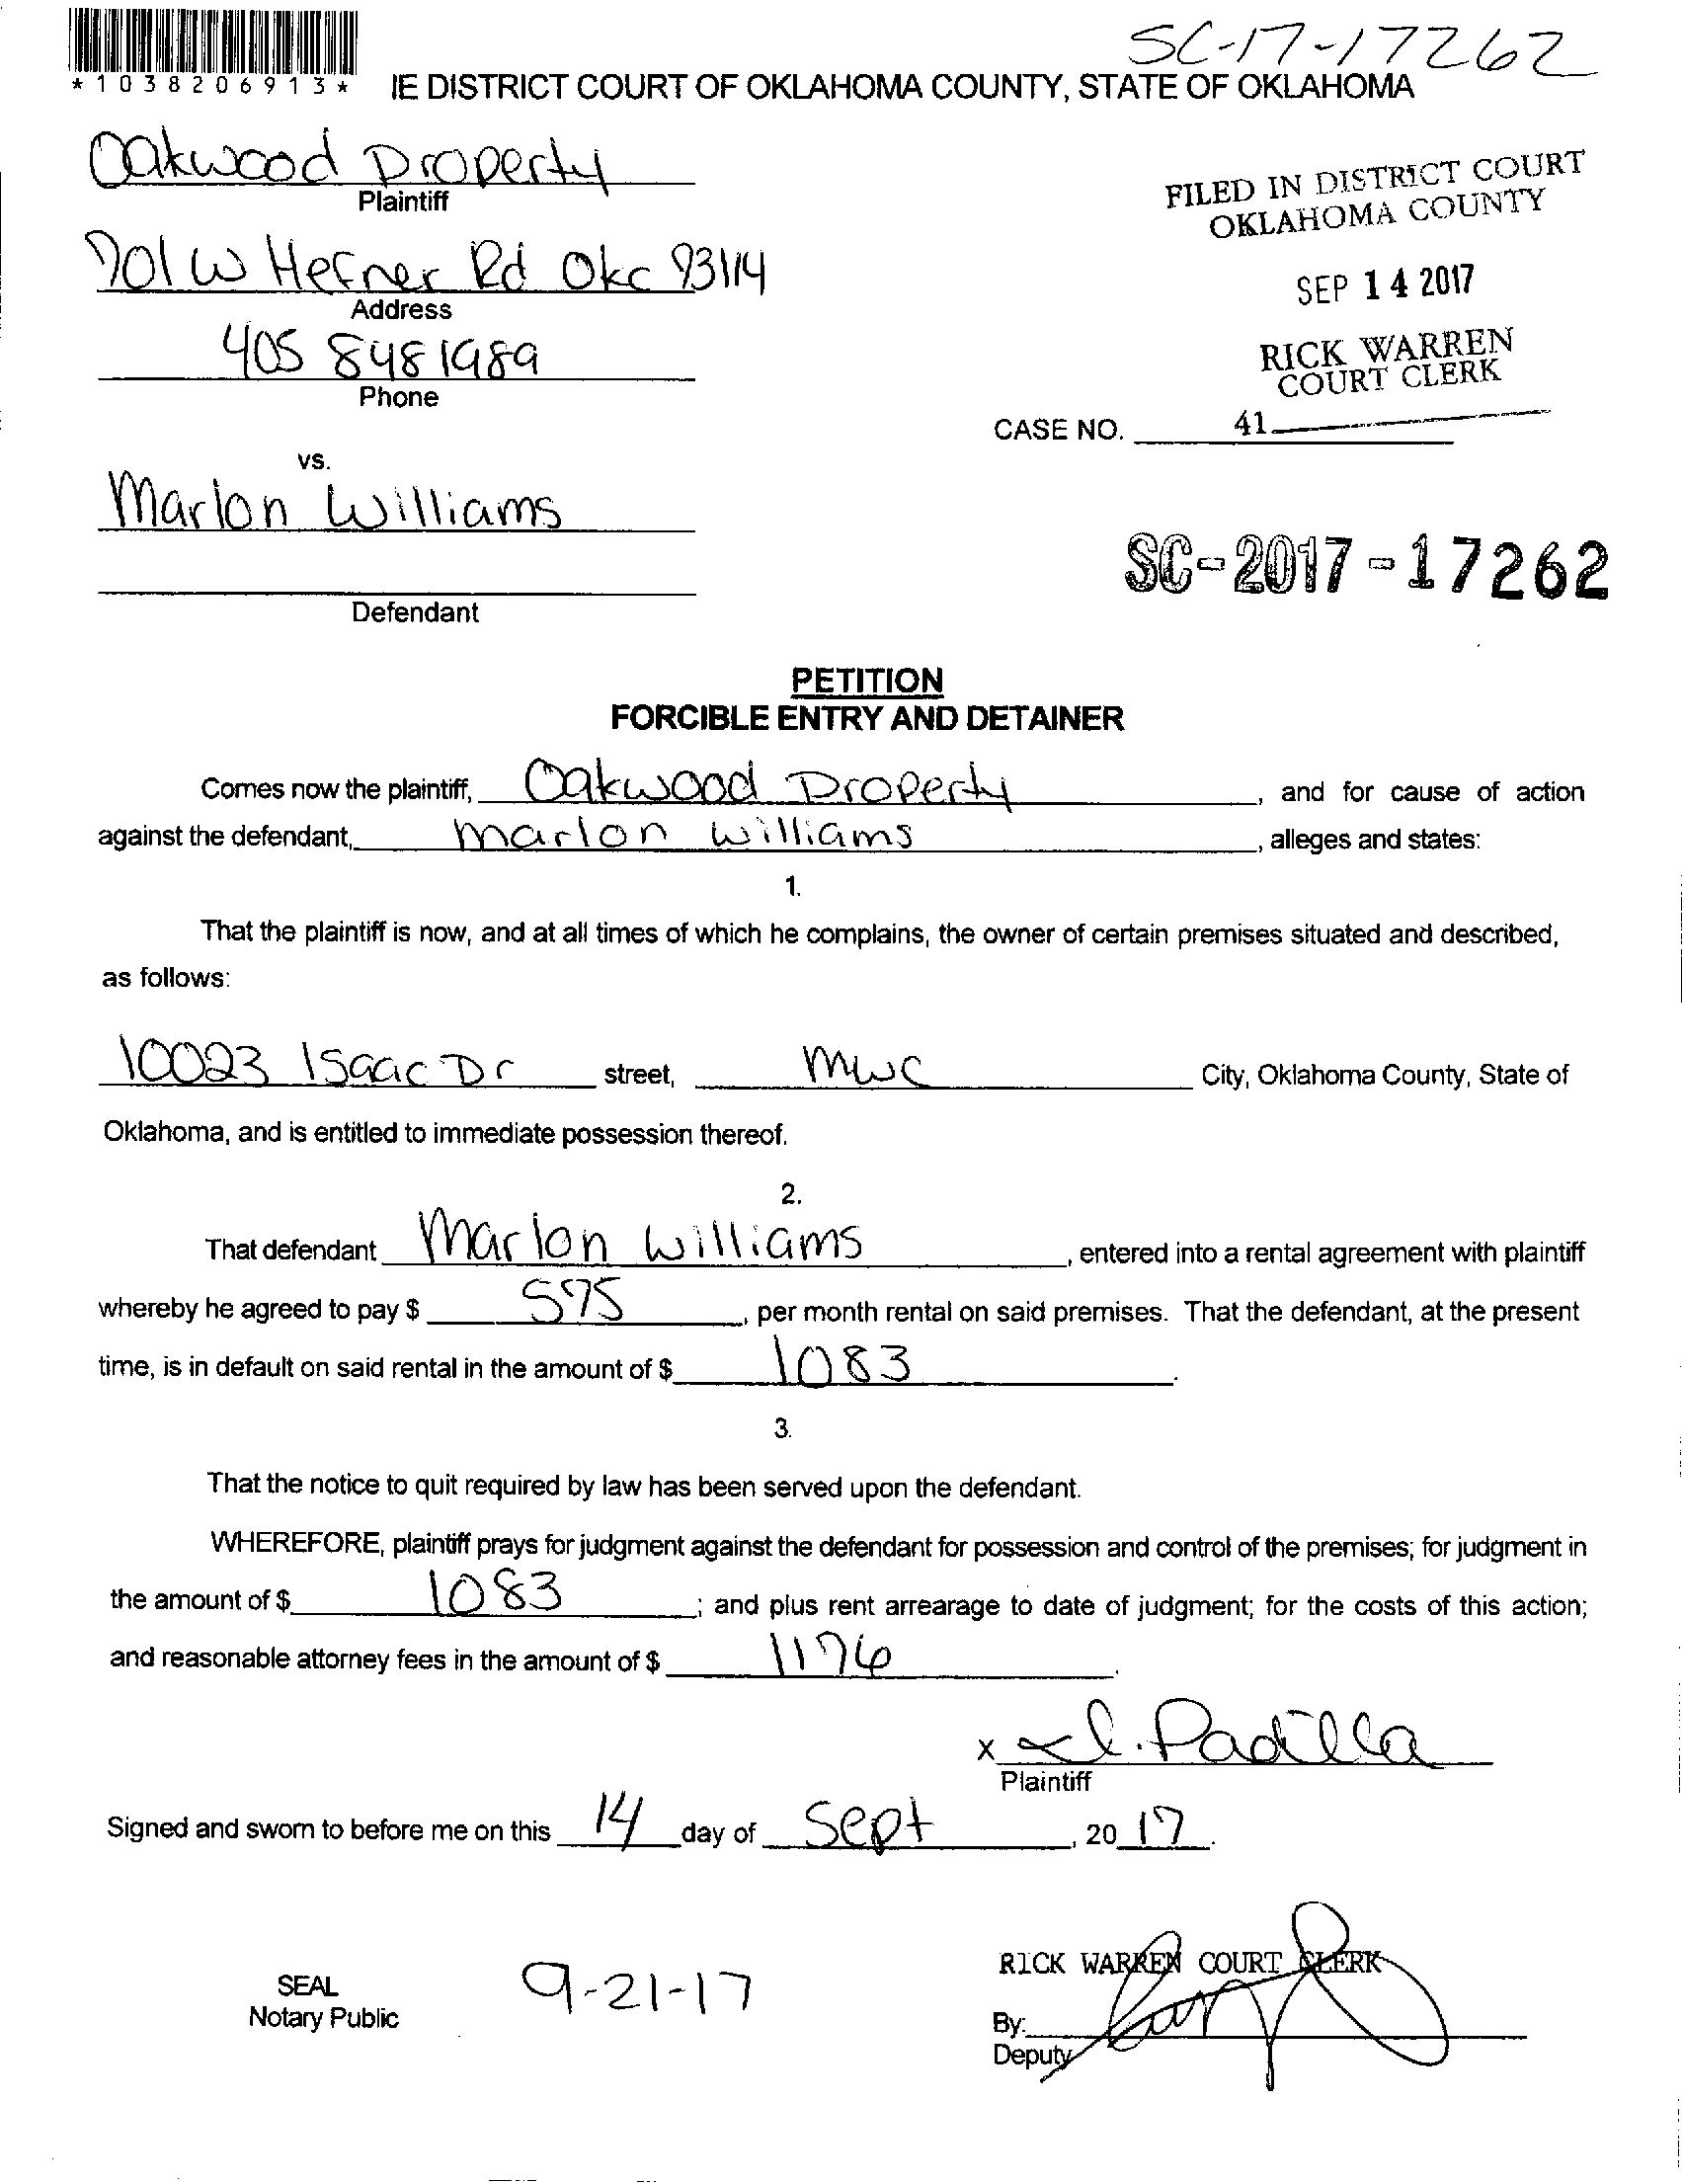 SC-17-17262
*1038206913*
IE DISTRICT COURT OF OKLAHOMA COUNTY, STATE OF OKLAHOMA
Oakwood Property
Plaintiff
FILED IN DISTRICT COURT
OKLAHOMA COUNTY
701 W Hefner Rd Okc 73114
Address
SEP 14 2017
405 848 1989
Phone
RICK WARREN
COURT CLERK
CASE NO. 41
vs.
Marlon Williams
SC-2017-17262
Defendant
PETITION
FORCIBLE ENTRY AND DETAINER
Comes now the plaintiff, Oakwood Property, and for cause of action
against the defendant, Marlon Williams, alleges and states:
1.
That the plaintiff is now, and at all times of which he complains, the owner of certain premises situated and described,
as follows:
10023 Isaac Dr street, MWC City, Oklahoma County, State of
Oklahoma, and is entitled to immediate possession thereof.
2.
That defendant Marlon Williams, entered into a rental agreement with plaintiff
whereby he agreed to pay $ 575, per month rental on said premises. That the defendant, at the present
time, is in default on said rental in the amount of $ 1083.
3.
That the notice to quit required by law has been served upon the defendant.
WHEREFORE, plaintiff prays for judgment against the defendant for possession and control of the premises; for judgment in
the amount of $ 1083; and plus rent arrearage to date of judgment; for the costs of this action;
and reasonable attorney fees in the amount of $ 1176.
x l. Padilla
Plaintiff
Signed and sworn to before me on this 14 day of Sept, 20 17.
RICK WARREN COURT CLERK
SEAL
Notary Public
9-21-17
By:
Deputy